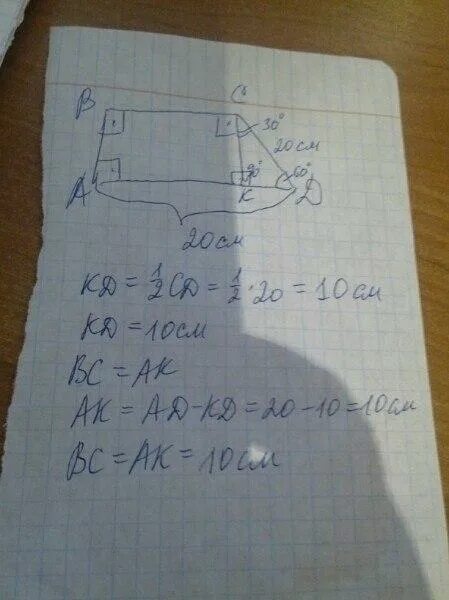 B C
30°
20см
90° 60°
A K D
20см
KD = 1/2 CD = 1/2 · 20 = 10см
KD = 10см
BC = AK
AK = AD - KD = 20 - 10 = 10см
BC = AK = 10см